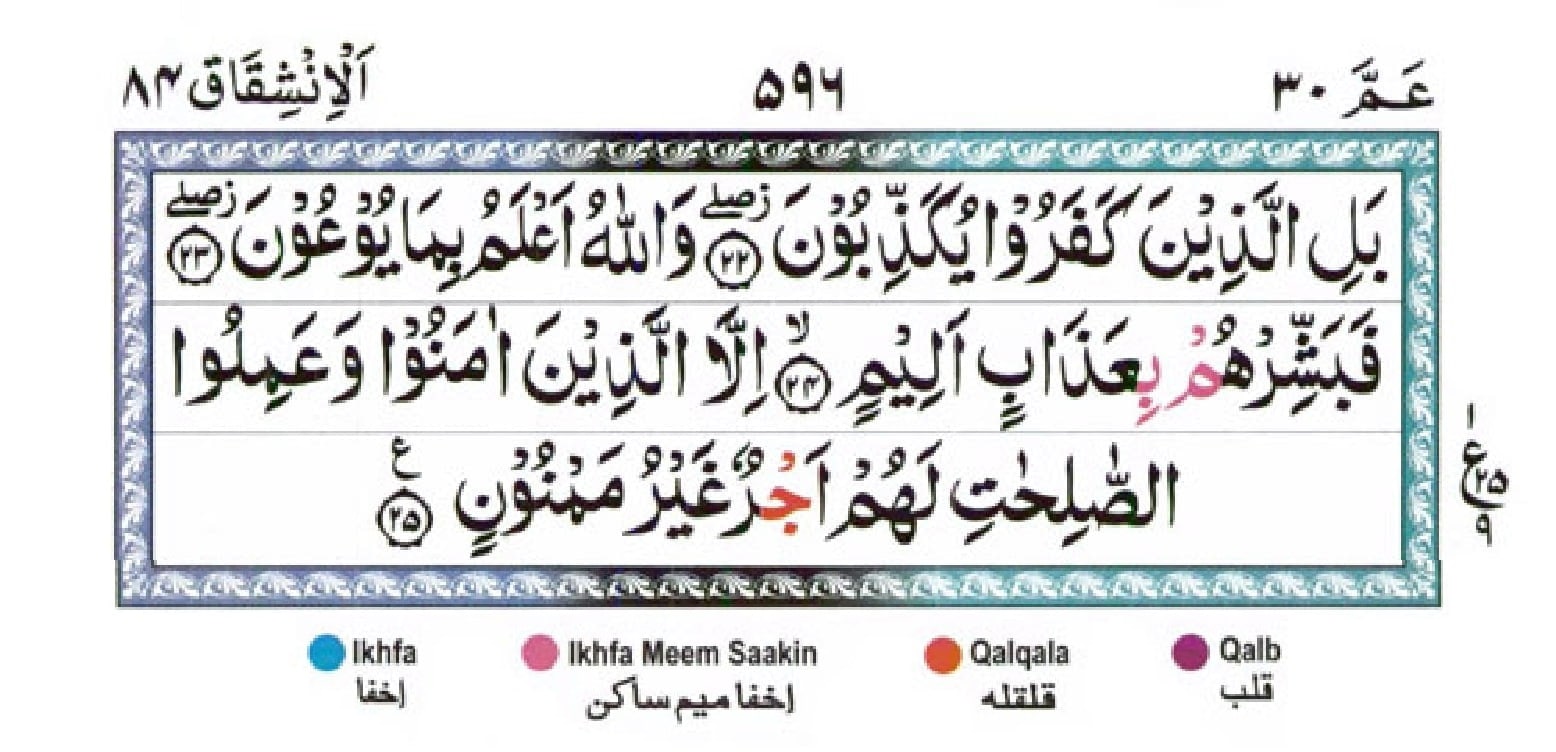 عَمَّ ٣٠
٥٩٦
اَلْاِنْشِقَاق ٨٤
بَلِ الَّذِيْنَ كَفَرُوْا يُكَذِّبُوْنَ ۖز ٢٢ وَاللّٰهُ اَعْلَمُ بِمَا يُوْعُوْنَ ۖز ٢٣
فَبَشِّرْهُمْ بِعَذَابٍ اَلِيْمٍ ۙ ٢٤ اِلَّا الَّذِيْنَ اٰمَنُوْا وَعَمِلُوا
الصّٰلِحٰتِ لَهُمْ اَجْرٌ غَيْرُ مَمْنُوْنٍ ع ٢٥
١
ع
٢٥
٩
Ikhfa
إخفا
Ikhfa Meem Saakin
إخفا ميم ساكن
Qalqala
قلقله
Qalb
قلب